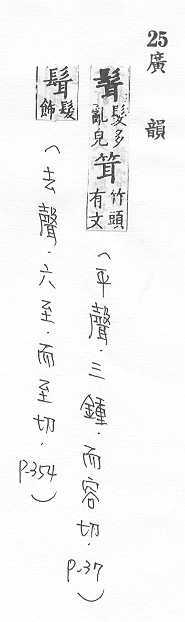 25 廣韻
髶 髮多亂皃 䇯 竹頭有文 (平聲·三鍾·而容切. p.37)
髶 髮飾 (去聲·六至·而至切. p.354)